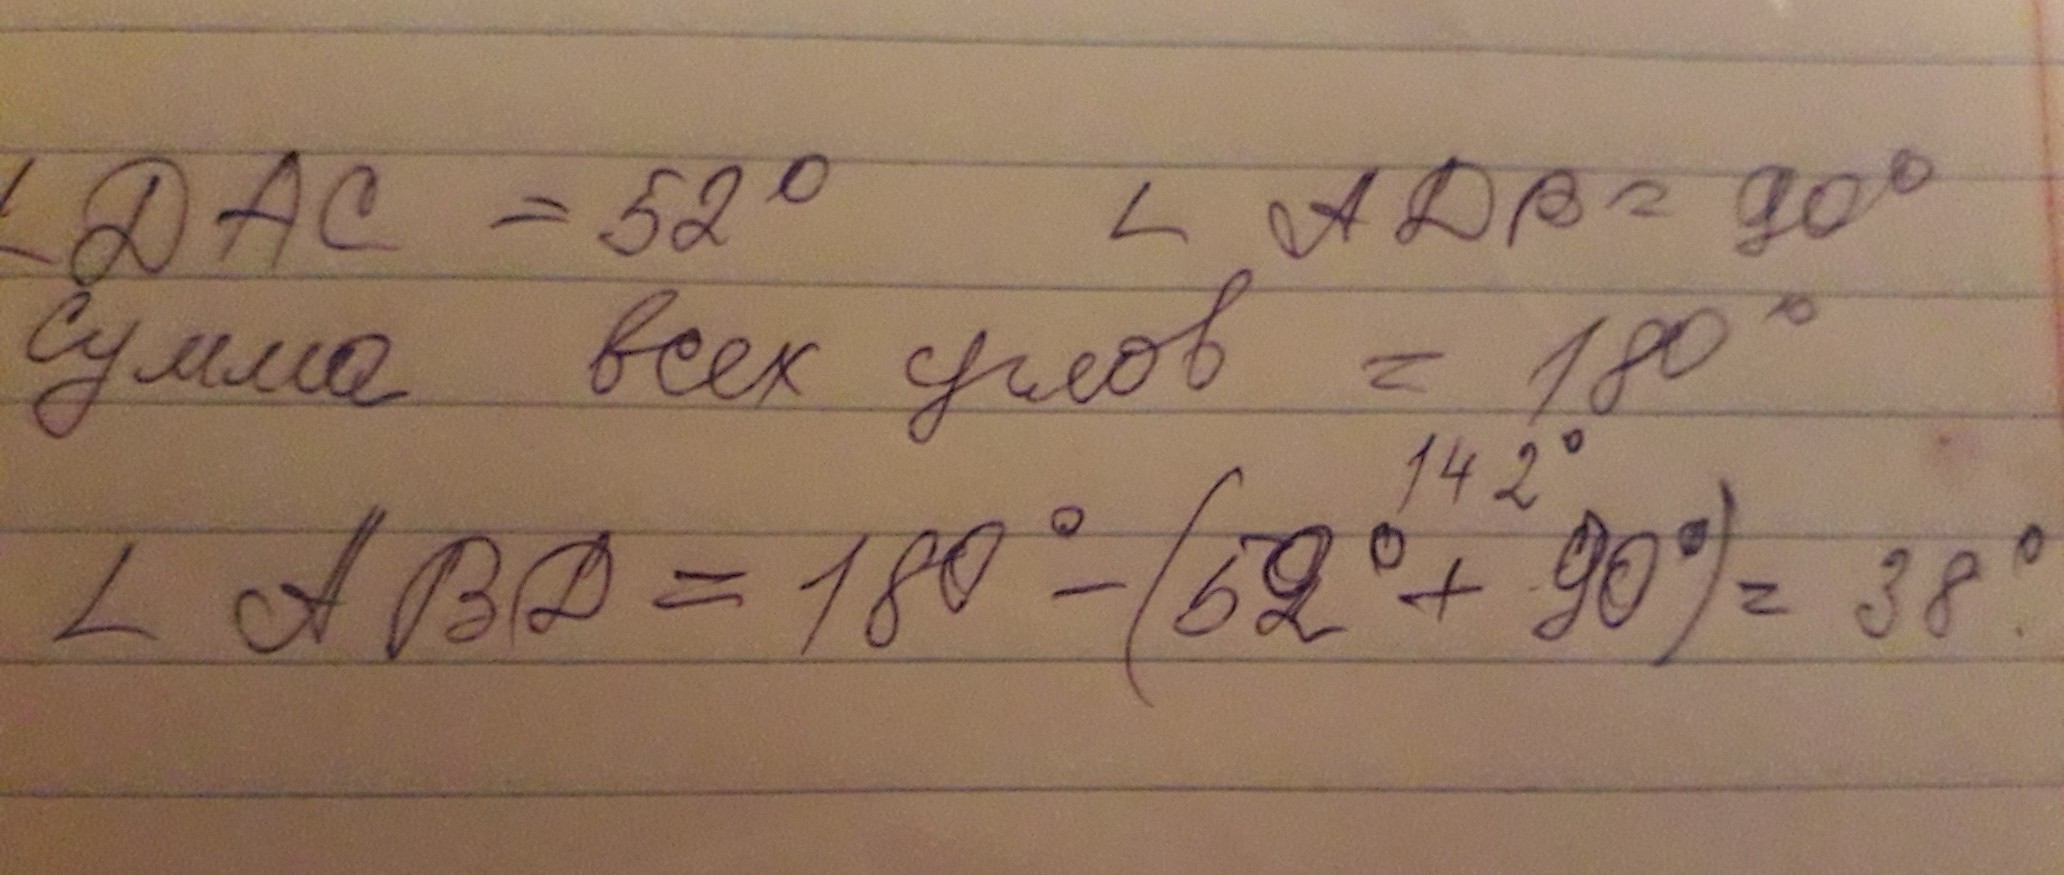 ∠ DAC = 52° ∠ ADB = 90°
Сумма всех углов = 180°
142°
∠ ABD = 180° - (52° + 90°) = 38°.